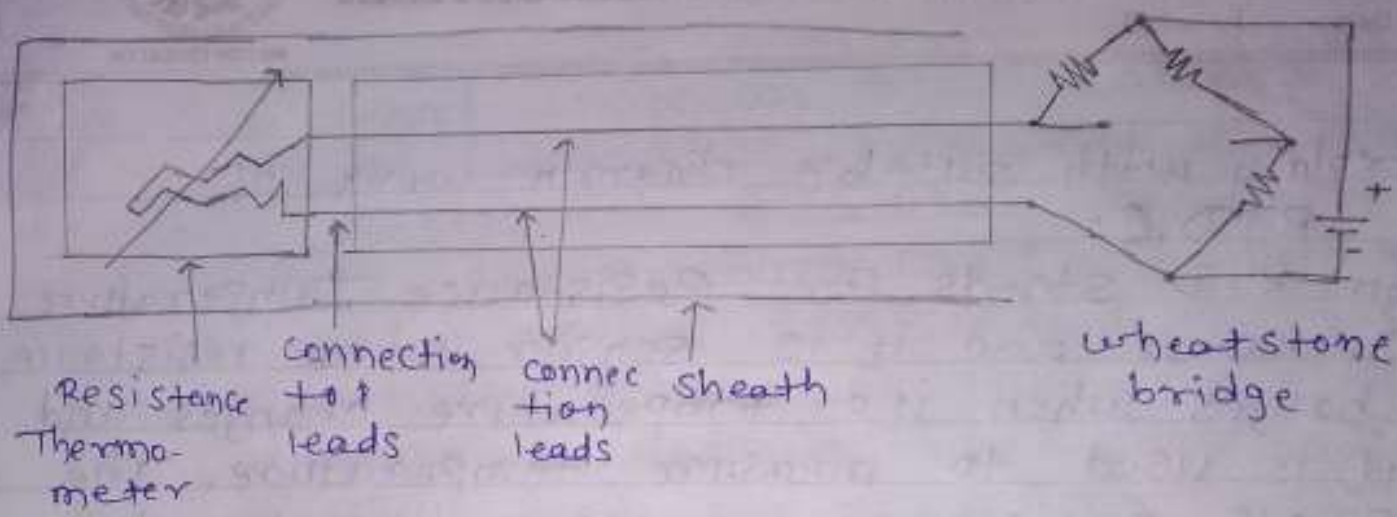 Resistance
Thermo-
meter
connection
to
leads
connec
tion
leads
sheath
wheatstone
bridge
+
-